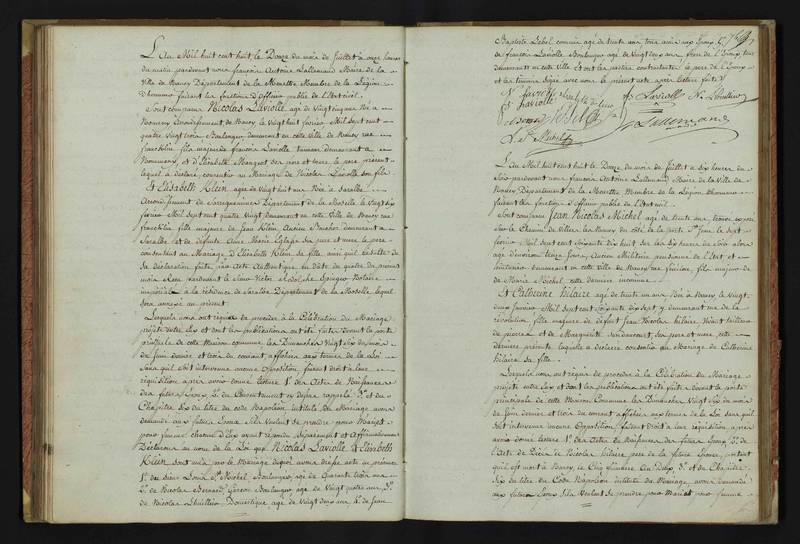 L'an Mil huit cent huit le Douze du mois de Juillet à onze heures
du matin pardevant nous françois Antoine Lallemand Maire de la
Ville de Nancy Département de la Meurthe Membre de la Légion
d'honneur faisant les fonctions d'Officier public de l'Etat civil.
Sont comparus Nicolas Laviolle agé de Vingt cinq ans Né à
Nommeny arrondissement de Nancy le Vingt huit fevrier Mil sept cent
quatre Vingt trois Boulanger demeurant en cette Ville de Nancy rue
fils majeur de françois Laviolle demeurant à
Nommeny, et d'Elisabeth Mangeot ses pere et mere, le pere présent
lequel a déclaré consentir au Mariage de Nicolas Laviolle son fils
Et Elisabeth Klein agée de Vingt huit ans Née à Saralbe
Arrondissement de Sarreguemines Département de la Moselle le Vingt six
fevrier Mil sept cent quatre Vingt demeurant en cette Ville de Nancy rue
fille majeure de Jean Klein, Ancien Boucher demeurant à
Saralbe, et de défunte Anne Marie ses pere et mere le pere
consentant au Mariage d'Elisabeth Klein sa fille, ainsi qu'il est
sa déclaration faite par Acte Authentique en date du quatre du présent
mois Reçu pardevant Notaire
impérial à la résidence de Saralbe Département de la Moselle lequel
sera annexé au présent
Lesquels nous ont requis de procéder à la Célébration du Mariage
projeté entre Eux et dont les publications ont été faites devant la porte
principale de cette Maison commune les Dimanches Vingt six du mois
de Juin dernier et trois du courant affichées aux termes de la Loi
sans qu'il soit intervenu aucune opposition, faisant droit à leur
réquisition après avoir donné lecture 1° des Actes de Naissance
des futurs Epoux, 2° du Consentement cy dessus rappelé 3° et du
Chapitre Six du titre du code Napoléon intitulé du Mariage avons
demandé aux futurs Epoux s'ils Veulent se prendre pour Mari et
pour femme chacun d'Eux ayant répondu Séparément et Affirmativement
Déclarons au nom de la Loi que Nicolas Laviolle et Elisabeth
Klein sont unis par le Mariage Dequoi avons dressé acte en présence
1° du sieur Louis Michel, Boulanger, agé de Quarante trois ans
2° de Nicolas Bernard, Garçon Boulanger agé de Vingt quatre ans 3°
de Nicolas Lhuillier Domestique agé de Vingt deux ans 4° de Jean
Baptiste Lebel commis agé de trente ans tous amis aux Epoux 5°
de françois Laviolle Boulanger agé de Vingt deux ans, frere de l'Epoux, tous
demeurants en cette Ville Et ont les parties contractantes le pere de l'Epoux
et les témoins signé avec nous le présent acte après lecture faite
N. Laviolle
f. Laviolle
Laviolle N. Lhuillier
Lebel
Lallemand
L. Michel
L'an Mil huit cent huit le Douze du mois de Juillet à Six heures du
Soir pardevant nous françois Antoine Lallemand Maire de la Ville de
Nancy Département de la Meurthe Membre de la Légion d'honneur
faisant les fonctions d'Officier public de l'Etat civil.
Sont comparus Jean Nicolas Michel agé de trente ans, trouvé exposé
Sur le Chemin de Villers lès Nancy du côté de la porte St Jean le sept
fevrier Mil sept cent soixante dix huit sur les Six heures du Soir alors
agé d'environ trois Jours, Ancien Militaire pensionné de l'Etat et
demeurant en cette Ville de Nancy rue fils majeur de
de Marie Michel cette derniere inconnue
Et Catherine hilaire agée de trente un ans Née à Nancy le Vingt
deux fevrier Mil sept cent soixante dix sept, y demeurant rue de la
révolution fille majeure de défunt Jean Nicolas hilaire Vivant tailleur
de pierres, et de Marguerite ses pere et mere, cette
derniere présente laquelle a déclaré consentir au Mariage de Catherine
hilaire sa fille.
Lesquels nous ont requis de procéder à la Célébration du Mariage
projeté entre Eux et dont les publications ont été faites devant la porte
principale de cette Maison Commune les Dimanches Vingt Six du mois
de Juin dernier et trois du courant affichées aux termes de la Loi sans qu'il
soit intervenu aucune Opposition, faisant droit à leur réquisition après
avoir donné lecture 1° des Actes de Naissance des futurs Epoux 2° de
l'Acte de Décès de Nicolas hilaire pere de la future Epouse, portant
qu'il est mort à Nancy, le Cinq 3° et du Chapitre
Six du titre du Code Napoléon intitulé du Mariage, avons demandé
aux futurs Epoux s'ils Veulent se prendre pour Mari et pour femme